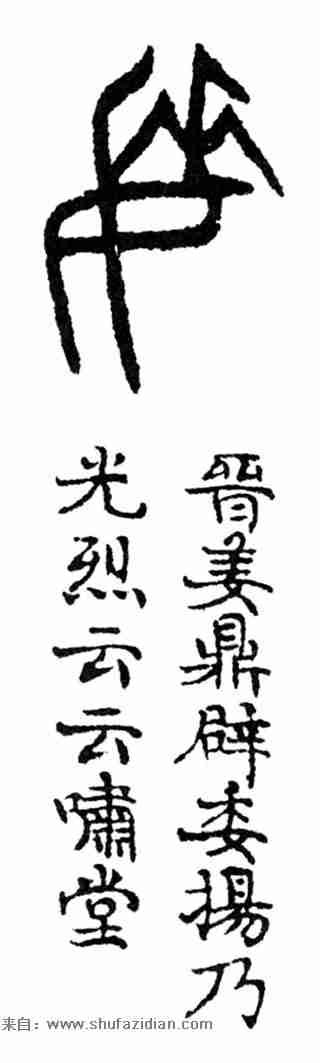 晋姜鼎辟委揚乃
光烈云云嘯堂
来自：www.shufazidian.com